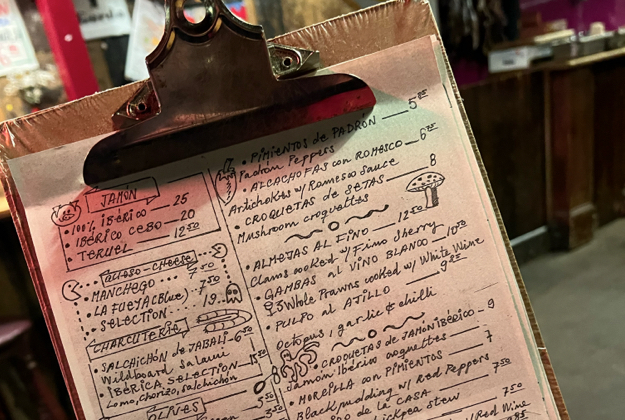 JAMÓN
• 100% IBÉRICO — 25
• IBÉRICO CEBO — 20
• TERUEL — 12.50
QUESO-CHEESE
• MANCHEGO 7.50
• LA FUEYA (Blue)
• SELECTION 19
CHARCUTERIE
• SALCHICHÓN de JABALÍ
Wildboard Salami
• IBÉRICA SELECTION
Lomo, chorizo, salchichón
OLIVES
5.50
• PIMIENTOS de PADRÓN — 5
Padron Peppers
• ALCACHOFAS con ROMESCO — 6
Artichokes w/ Romesco Sauce
• CROQUETAS de SETAS — 8
Mushroom croquettes
• ALMEJAS AL FINO — 12.50
Clams cooked w/ Fino Sherry
• GAMBAS al VINO BLANCO — 10.50
Whole Prawns cooked w/ White Wine
• PULPO al AJILLO — 9
Octopus, garlic & chilli
• CROQUETAS de JAMÓN IBÉRICO — 9
Jamón Ibérico croquettes
• MORCILLA con PIMIENTOS — 7
Black pudding w/ Red Peppers
de la CASA — 7.50
stew
7.50
w/ Red Wine